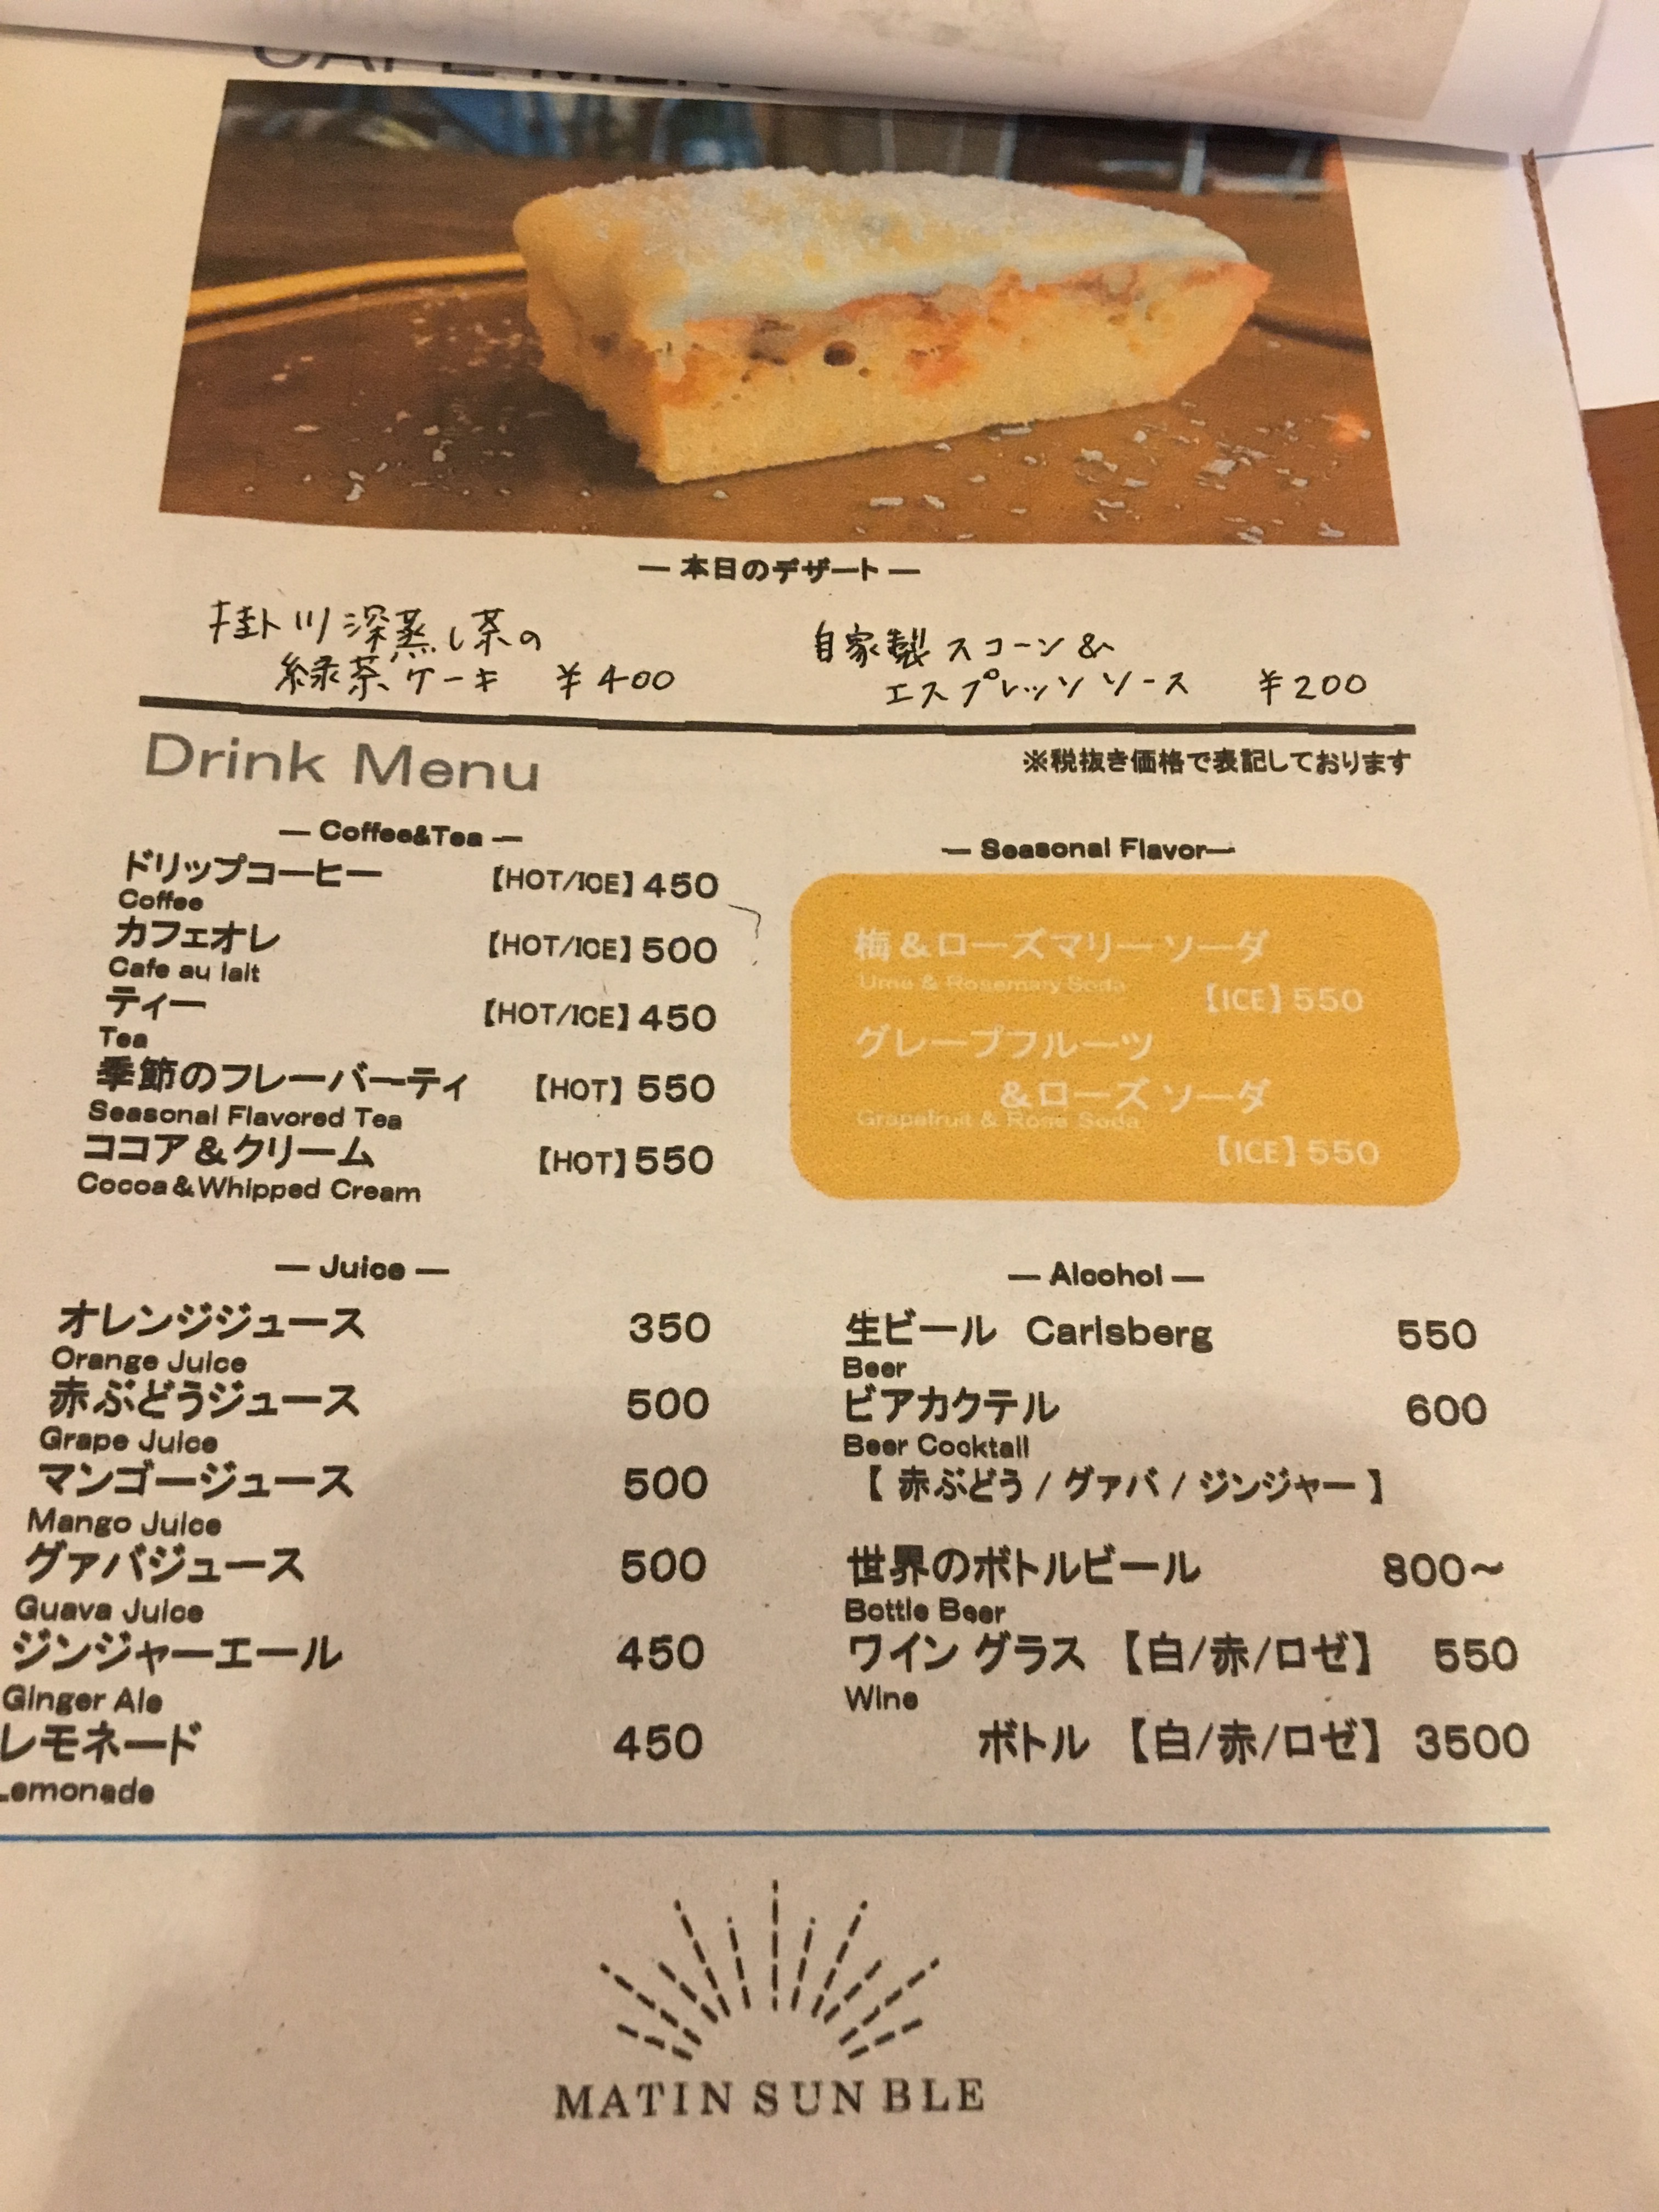 CAFE MENU
— 本日のデザート —
掛川深蒸し茶の
緑茶ケーキ ¥400
自家製スコーン&
エスプレッソソース ¥200
Drink Menu
※税抜き価格で表記しております
— Coffee&Tea —
ドリップコーヒー 【HOT/ICE】450
Coffee
カフェオレ 【HOT/ICE】500
Cafe au lait
ティー 【HOT/ICE】450
Tea
季節のフレーバーティ 【HOT】550
Seasonal Flavored Tea
ココア&クリーム 【HOT】550
Cocoa&Whipped Cream
— Seasonal Flavor—
梅&ローズマリーソーダ
Ume & Rosemary Soda
【ICE】550
グレープフルーツ
&ローズソーダ
Grapefruit & Rose Soda
【ICE】550
— Juice —
オレンジジュース 350
Orange Juice
赤ぶどうジュース 500
Grape Juice
マンゴージュース 500
Mango Juice
グァバジュース 500
Guava Juice
ジンジャーエール 450
Ginger Ale
レモネード 450
Lemonade
— Alcohol —
生ビール Carlsberg 550
Beer
ビアカクテル 600
Beer Cocktail
【 赤ぶどう / グァバ / ジンジャー 】
世界のボトルビール 800〜
Bottle Beer
ワイン グラス 【白/赤/ロゼ】 550
Wine
ボトル 【白/赤/ロゼ】 3500
MATIN SUN BLE